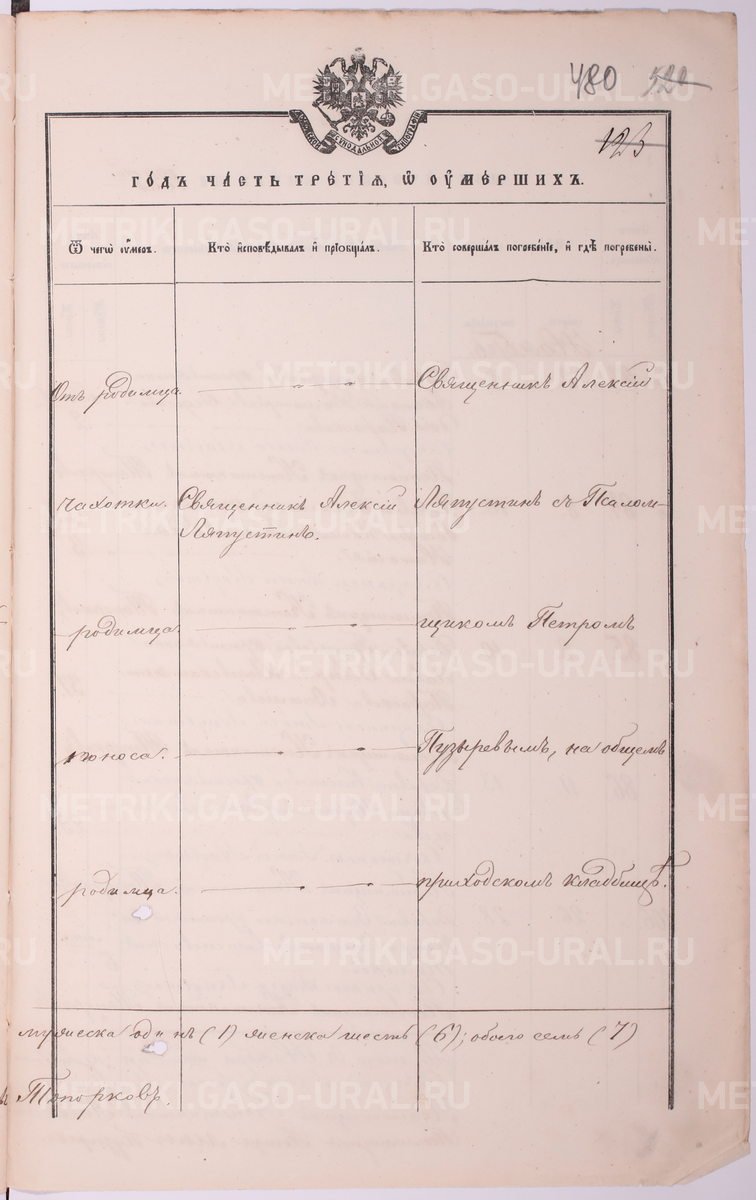 480 522
123
СѴНОДАЛЬНОЙ ТИПОГРАФІИ
ГО́ДЪ ЧА́СТЬ ТРЕ́ТІѦ, Ѿ ОУМЕ́РШИХЪ.
Ѿ чегѡ̀ оу́меръ.
Кто̀ и҆сповѣ́дывалъ и҆ прїѡбща́лъ.
Кто̀ соверша́лъ погребе́нїе, и҆ гдѣ̀ погребены̀.
Отъ родимца.
Священникъ Алексій
чахотки.
Священникъ Алексій
Ляпустинъ.
Ляпустинъ съ Псалом-
родимца
щикомъ Петромъ
поноса.
Пузыревымъ, на общемъ
родимца.
приходскомъ кладбищѣ.
мужеска одинъ (1) женска шесть (6); обоего семь (7)
Топорковъ.
METRIKI.GASO-URAL.RU